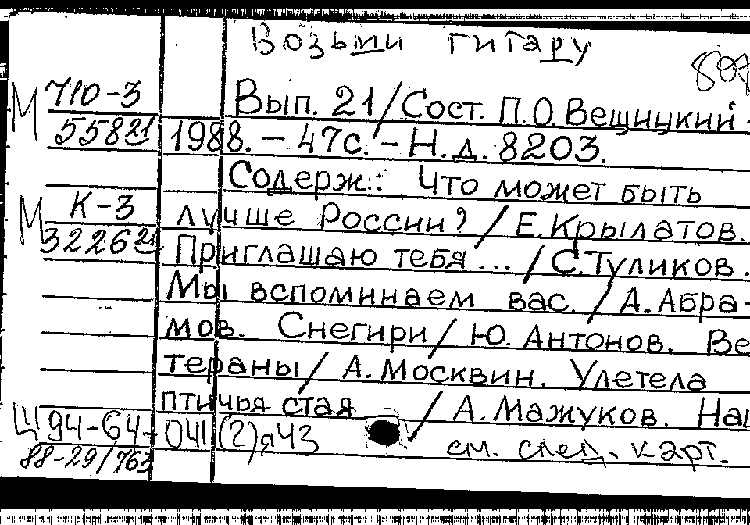 Возьми гитару
М 710-3 Вып. 21/Сост. П.О.Вещицкий.-
55821 1988. - 47с. - Н.д. 8203.
Содерж.: Что может быть
М К-3 лучше России? / Е.Крылатов.
322621 Приглашаю тебя... / С.Туликов.
Мы вспоминаем вас. / А.Абра-
мов. Снегири / Ю. Антонов. Ве
тераны / А.Москвин. Улетела
птичья стая / А.Мажуков. Наш
Ц 94-64-041(2)я43 см. след. карт.
88-29/763